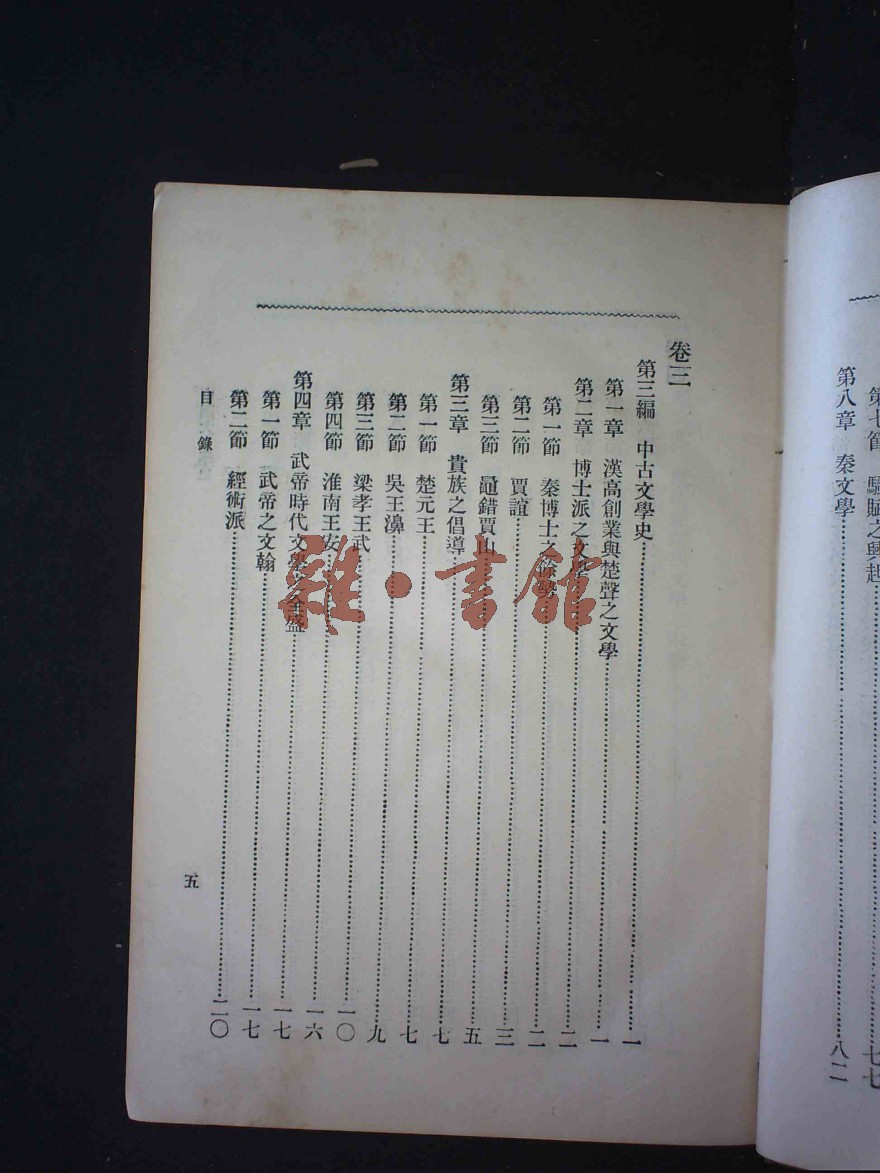 第七節　騷賦之興起……七七
第八章　秦文學……八二
卷三
第三編　中古文學史……一
第一章　漢高創業與楚聲之文學……一
第二章　博士派之文學……二
第一節　秦博士之餘勢……二
第二節　賈誼……三
第三節　鼂錯賈山……五
第三章　貴族之倡導……七
第一節　楚元王……七
第二節　吳王濞……九
第三節　梁孝王武……一〇
第四節　淮南王安……一六
第四章　武帝時代文學之全盛……一七
第一節　武帝之文翰……一七
第二節　經術派……二〇
目錄
五
雜·書館